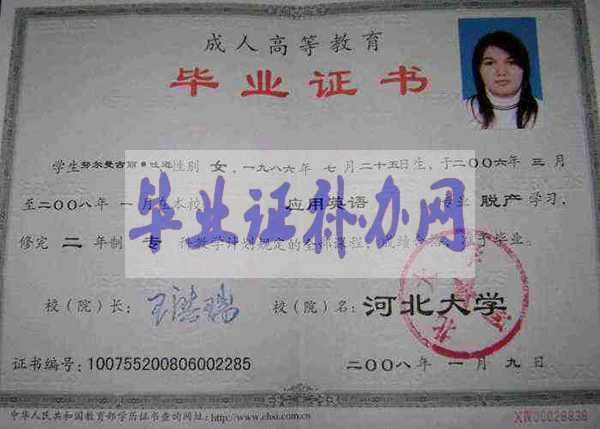 成人高等教育
毕业证书
学生 性别 女,一九八六年 七 月二十五日生,于二〇〇六年 三 月
至二〇〇八年 一月在本校 应用英语 专业 脱产 学习,
毕业证补办网
修完 二 年制 专 科教学计划规定的全部课程,成绩合格,准予毕业。
校(院)长: 校(院)名:河北大学
证书编号:100755200806002285 二〇〇八年 一 月 九 日
中华人民共和国教育部学历证书查询网址:http://www.chsi.com.cn XW00028838